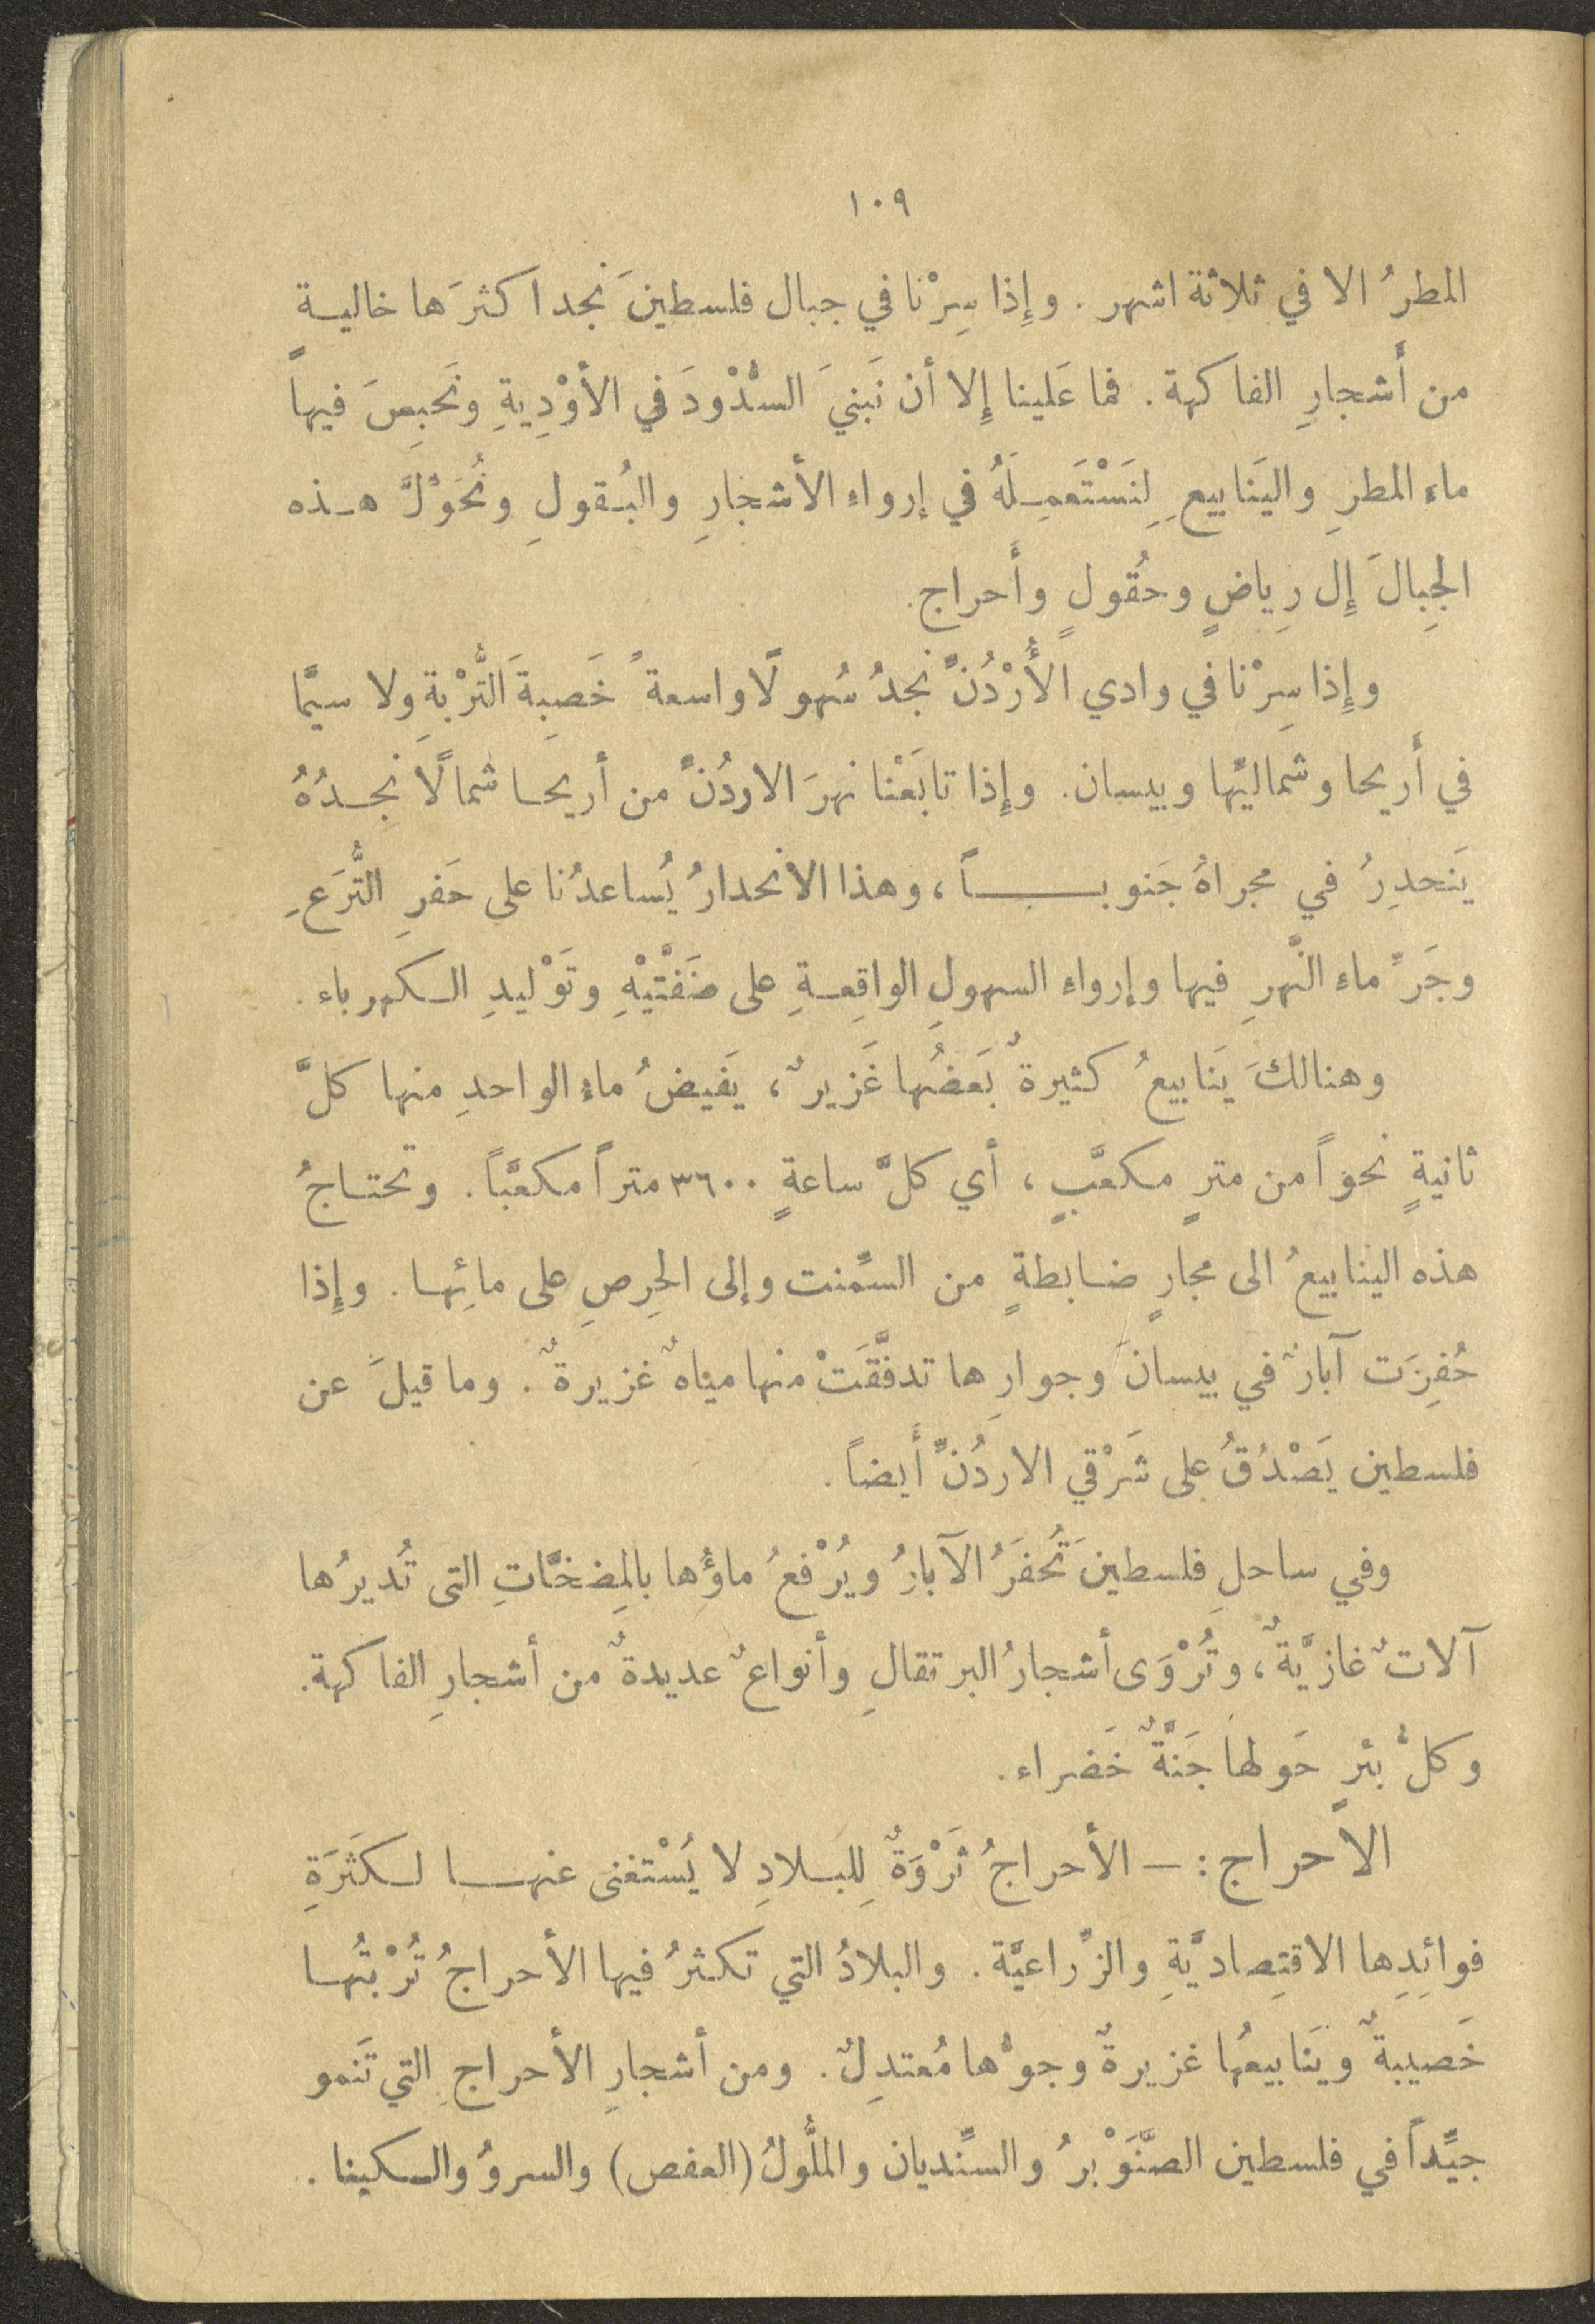 ١٠٩
المطرُ الا في ثلاثة اشهر . وإِذا سِرْنا في جبال فلسطينَ نجد اكثرَها خاليـةً
من أَشجارِ الفاكهة . فما عَلينا إِلا أن نَبنيَ السُّدْودَ في الأوْدِيةِ ونَحبِسَ فيها
ماء المطرِ واليَنابيعِ لِنَسْتَعمِـلَهُ في إرواءِ الأشجارِ والبُـقولِ ونُحَوْلَّ هـذه
الجِبالَ إِل رِياضٍ وحُقُولٍ وأَحراج.
وإِذا سِرْنا في وادي الأُرْدُنِّ نجدُ سُهولًا واسعةً خَصِبِةَ التُّرْبةِ ولا سيَّما
في أَريحا وشماليِّها وبيسان. وإِذا تابَعْنا نهرَ الاردُنِّ من أريحـا شمالًا نجِـدُهُ
يَنحدِرُ في مجراهُ جَنوبـــاً ، وهذا الانحدارُ يُساعدُنا على حَفرِ التُّرَعِ
وجَرِّ ماء النَّهرِ فيها وإرواء السهولِ الواقِعـةِ على ضَفَّتيْهِ وتَوْليدِ الـكهرباء .
وهنالكَ يَنابيعُ كثيرةٌ بَعضُها غَزيرٌ ، يَفيضُ ماءُ الواحدِ منها كلَّ
ثانيةٍ نحوًا من مترٍ مكعَّبٍ ، أي كلَّ ساعةٍ ٣٦٠٠ متراً مكعَّباً . وتحتـاجُ
هذه الينابيعُ الى مجارٍ ضـابطةٍ من السِّمنت وإلى الحِرصِ على مائِهـا . وإِذا
حُفِرَت آبارٌ في بيسانَ وجوارِها تدفَّقَتْ منها مياهٌ غزيرةٌ . وما قيلَ عن
فلسطين يَصْدُقُ على شَرْقي الاردُنِّ أَيضاً .
وفي ساحلِ فلسطينَ تُحفَرُ الآبارُ ويُرْفعُ ماؤُها بالمِضخَّاتِ التى تُديرُها
آلاتٌ غازيَّةٌ ، وتُرْوَى أشجارُ البرتقالِ وأنواعٌ عديدةٌ من أشجارِ الفاكهة.
وكلُّ بئرٍ حَولها جَنَّةٌ خَضراء.
الاحراج : — الأحراجُ ثَرْوَةٌ لِلبـلادِ لا يُسْتغنى عنهــا لـكَثرَةِ
فوائِدِها الاقتِصاديَّةِ والزِّراعيَّة . والبلادُ التي تكثرُ فيها الأحراجُ تُرْبتُهـا
خَصيبةٌ ويَنابيعُها غزيرةٌ وجوُّها مُعتدِلٌ . ومن أشجارِ الأحراجِ التي تَنمو
جيِّداً في فلسطين الصَّنَوْبرُ والسِّنديان والملُّولُ (العفص) والسروُ والـكينا .